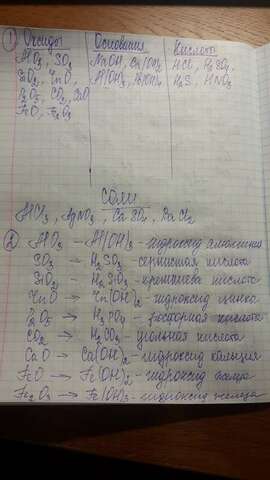 1 Оксиды Основания Кислота
SO3 NaOH, Ca(OH)2 HCl
SiO2, ZnO, Al(OH)3 H2S, HNO3
P2O5, CO2
FeO, Fe2O3
Соли
AlCl3, AgNO3
2 Al(OH)3 - гидроксид алюминия
H2SO3 - сернистая кислота
SiO2 → H2SiO3 - кремниева кислота
ZnO → Zn(OH)2 - гидроксид цинка
P2O5 → H3PO4 - фосфорная кислота
CO2 → H2CO3 - угольная кислота
CaO → Ca(OH)2 - гидроксид кальция
FeO → Fe(OH)2 - гидроксид железа
Fe2O3 → Fe(OH)3 - гидроксид железа